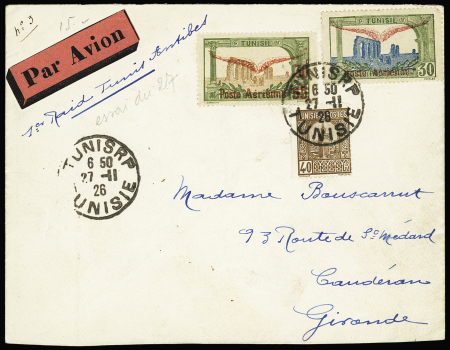 n° 3
15 -
Par Avion
1er Raid Tunis Antibes
essai du 27
TUNISIE
Poste Aérienne
TUNISIE
Poste Aérienne
30
TUNIS RP
6 50
27 - 11
26
TUNISIE
TUNIS RP
6 50
27 - 11
26
TUNISIE
POSTES
40
Madame Bouscarrut
93 Route de St Médard
Caudéran
Gironde